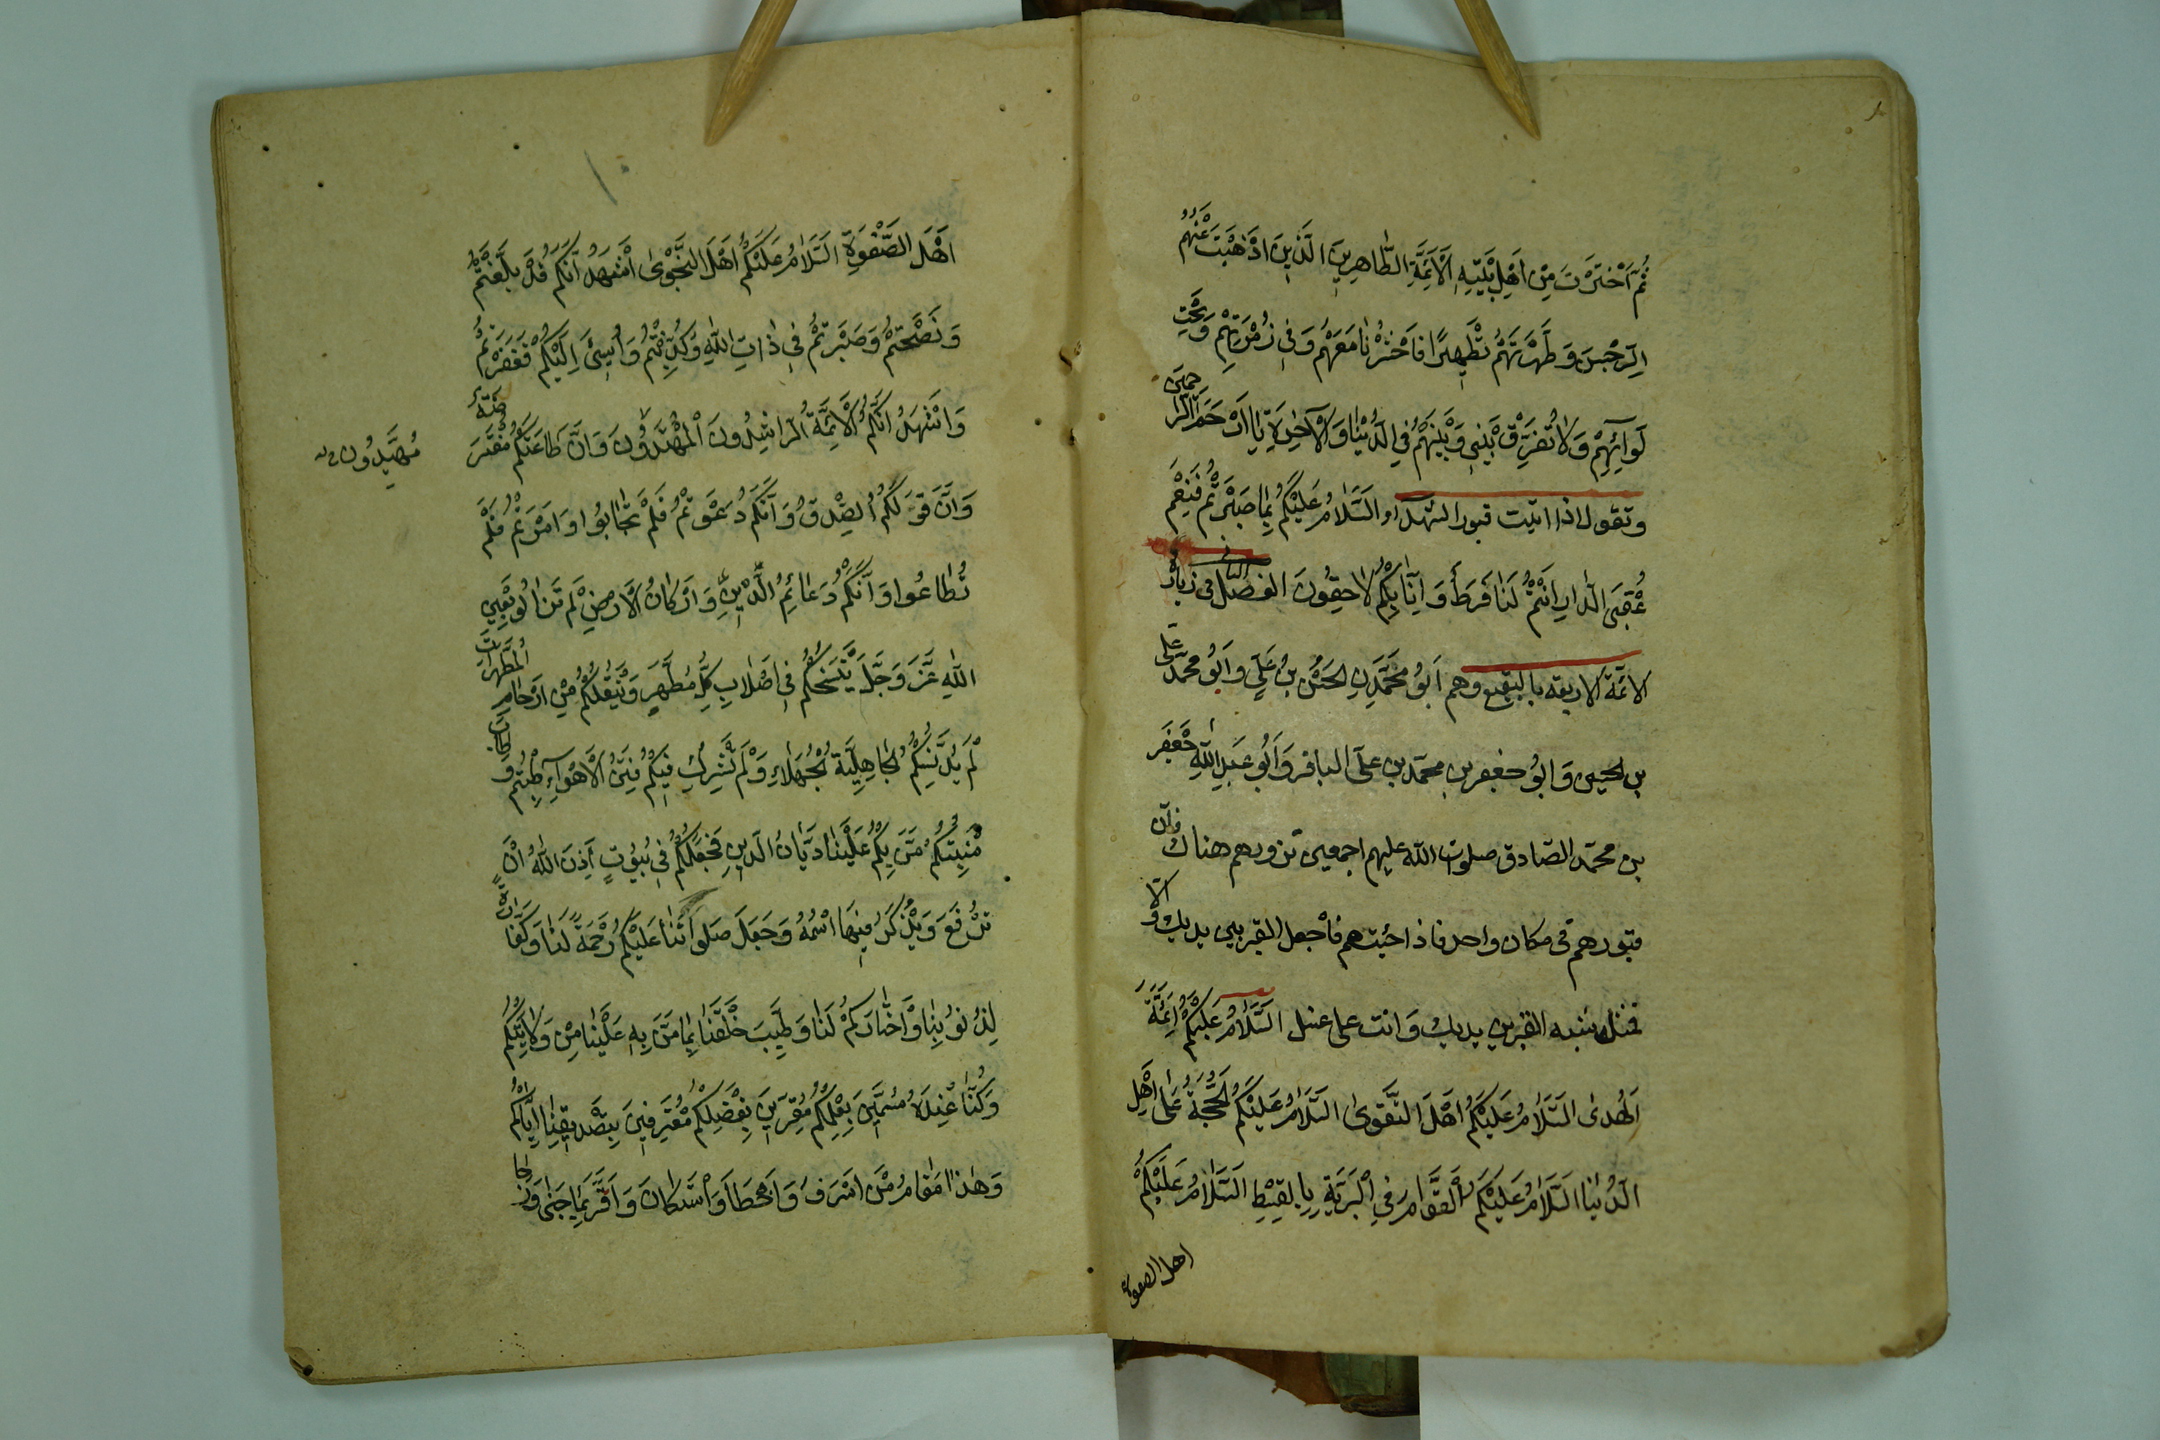 ثُمَّ اَخْتَرْتَ مِنْ اَهْلِ بَيْتِهِ الْاَئِمَّةَ الطَّاهِرِينَ الَّذِينَ اَذْهَبْتَ عَنْهُمُ
الرِّجْسَ وَطَهَّرْتَهُمْ تَطْهِيرًا فَاحْشُرْنَا مَعَهُمْ وَفِي زُمْرَتِهِمْ وَتَحْتَ
لَوَائِهِمْ وَلَا تُفَرِّقْ بَيْنِي وَبَيْنَهُمْ فِي الدُّنْيَا وَالْآخِرَةِ يَا اَرْحَمَ الرَّاحِمِينَ
وتقول اذا اتيت قبور الشهدآء السَّلَامُ عَلَيْكُمْ بِمَا صَبَرْتُمْ فَنِعْمَ
عُقْبَى الدَّارِ اَنْتُمْ لَنَا فَرَطٌ وَاِنَّا بِكُمْ لَاحِقُونَ الفصل الثانى فى زيارة
الائمّة الاربعة بالبقيع وهم اَبُو مُحَمَّدٍ الْحَسَنُ بْنُ عَلِيٍّ وَاَبُو محمّد على
بن الحسين وَابُو جعفر بن محمّد بن على الباقر وَاَبُو عَبْدِ اللهِ جَعْفَر
بن محمّد الصّادق صلوات الله عليهم اجمعين تزورهم هناك فانّ
قبورهم فى مكان واحد فاذا جئتهم فاجعل القبر بين يديك والّا
القبرين يديك وَانت على غسل السَّلَامُ عَلَيْكُمْ اَئِمَّةَ
الْهُدى السَّلَامُ عَلَيْكُمْ اَهْلَ التَّقْوى السَّلَامُ عَلَيْكُمُ الْحُجَّةُ عَلى اَهْلِ
الدُّنْيَا السَّلَامُ عَلَيْكُمُ الْقَوَّامَ فِي الْبَرِيَّةِ بِالْقِسْطِ السَّلَامُ عَلَيْكُمْ
اهل الصفوة
اَهْلَ الصَّفْوَةِ السَّلَامُ عَلَيْكُمْ اَهْلَ النَّجْوى اَشْهَدُ اَنَّكُمْ قَدْ بَلَّغْتُمْ
وَنَصَحْتُمْ وَصَبَرْتُمْ فِي ذَاتِ اللهِ وَكُذِّبْتُمْ وَاُسِيئَ اِلَيْكُمْ فَغَفَرْتُمْ
وَاَشْهَدُ اَنَّكُمُ الْاَئِمَّةُ الرَّاشِدُونَ الْمُهْتَدُونَ وَاَنَّ طَاعَتَكُمْ مُفْتَرَضَةٌ
وَاَنَّ قَوْلَكُمُ الصِّدْقُ وَاَنَّكُمْ دَعَوْتُمْ فَلَمْ تُجَابُوا وَاَمَرْتُمْ فَلَمْ
تُطَاعُوا وَاَنَّكُمْ دَعَائِمُ الدِّينِ وَاَرْكَانُ الْاَرْضِ لَمْ تَزَالُوا بِعَيْنِ
اللهِ عَزَّ وَجَلَّ يَنْسَخُكُمْ فِي اَصْلَابِ كُلِّ مُطَهَّرٍ وَيَنْقُلُكُمْ مِنْ اَرْحَامِ الْمُطَهَّرَاتِ
لَمْ يُدَنِّسْكُمُ الْجَاهِلِيَّةُ الْجُهَلَاءُ وَلَمْ تَشْرَكْ فِيكُمْ فِتَنُ الْاَهْوَآءِ طِبْتُمْ وَطَابَ
مَنْبِتُكُمْ مَنَّ بِكُمْ عَلَيْنَا دَيَّانُ الدِّينِ فَجَعَلَكُمْ فِي بُيُوتٍ اَذِنَ اللهُ اَنْ
تُرْفَعَ وَيُذْكَرَ فِيهَا اسْمُهُ وَجَعَلَ صَلَوَاتَنَا عَلَيْكُمْ رَحْمَةً لَنَا وَكَفَّارَةً
لِذُنُوبِنَا وَاخْتَارَكُمْ لَنَا وَطَيَّبَ خَلْقَنَا بِمَا مَنَّ بِهِ عَلَيْنَا مِنْ وَلَايَتِكُمْ
وَكُنَّا عِنْدَهُ مُسَمَّيْنَ بِعِلْمِكُمْ مُقِرِّينَ بِفَضْلِكُمْ مُعْتَرِفِينَ بِتَصْدِيقِنَا اِيَّاكُمْ
وَهٰذَا مَقَامُ مَنْ اَسْرَفَ وَاَخْطَأَ وَاسْتَكَانَ وَاَقَرَّ بِمَا جَنى وَرَجَا